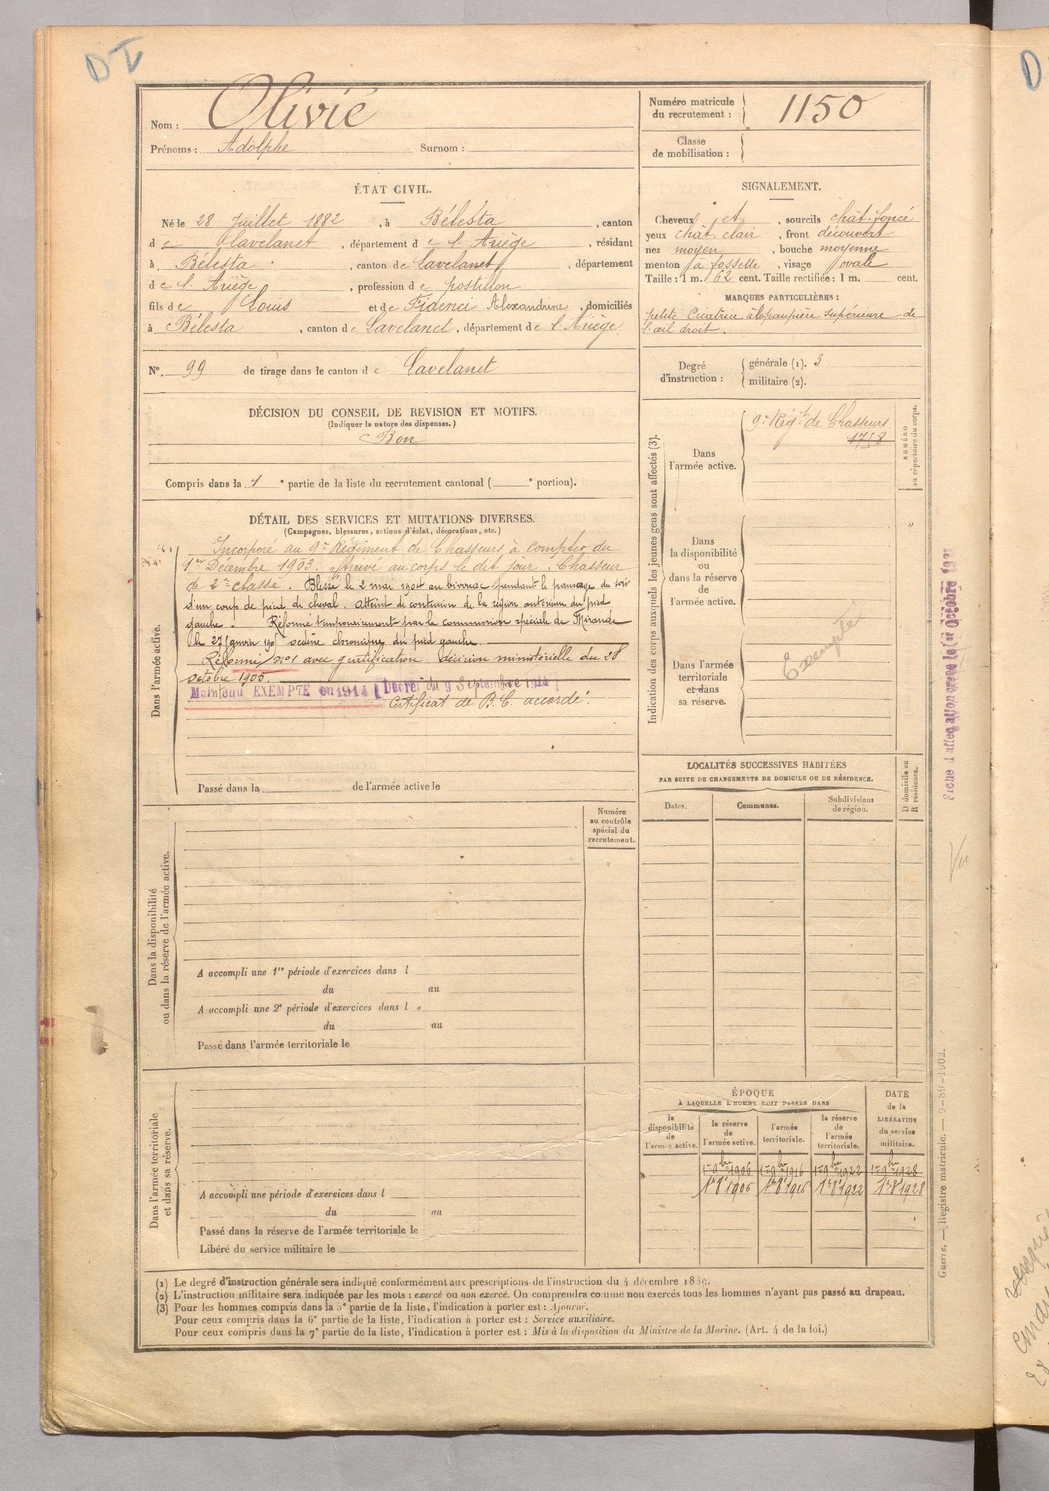 D I
Nom : Olivié
Prénoms : Adolphe Surnom :
Numéro matricule du recrutement : 1150
Classe de mobilisation :
ÉTAT CIVIL.
Né le 28 Juillet 1882, à Bélesta, canton
de Lavelanet, département de l'Ariège, résidant
à Bélesta, canton de Lavelanet, département
de l'Ariège, profession de postillon
fils de Louis et de Fidenci Alexandrine, domiciliés
à Bélesta, canton de Lavelanet, département de l'Ariège
N° 99 de tirage dans le canton de Lavelanet
SIGNALEMENT.
Cheveux et, sourcils chât. foncé
yeux chât. clair, front découvert
nez moyen, bouche moyenne
menton à fossette, visage ovale
Taille : 1 m. 62 cent. Taille rectifiée : 1 m. cent.
MARQUES PARTICULIÈRES :
petite Cicatrice à la paupière supérieure de
l'œil droit.
Degré d'instruction : générale (1). 3
militaire (2).
DÉCISION DU CONSEIL DE REVISION ET MOTIFS.
(Indiquer la nature des dispenses.)
Bon
Compris dans la 1e partie de la liste du recrutement cantonal ( e portion).
DÉTAIL DES SERVICES ET MUTATIONS DIVERSES.
(Campagnes, blessures, actions d'éclat, décorations, etc.)
Dans l'armée active.
Incorporé au 9e Régiment de Chasseurs à compter du
1er Décembre 1903. Arrivé au corps le dit jour. Chasseur
de 2e classe. Blessé le 2 mai 1904 au bivouac pendant le pansage du soir
d'un coup de pied de cheval. atteint de contusion de la région antérieure du pied
gauche. Réformé temporairement par la commission spéciale de Mirande
le 27 janvier 1905 œdème chronique du pied gauche.
Réforme n°1 avec gratification décision ministérielle du 28
octobre 1905.
Maintenu EXEMPTÉ en 1914 (Décret du 9 Septembre 1914)
Certificat de B.C. accordé.
Passé dans la de l'armée active le
Indication des corps auxquels les jeunes gens sont affectés (3).
Dans l'armée active. 9e Régt de Chasseurs
1758
NUMÉRO au répertoire du corps.
Dans la disponibilité ou dans la réserve de l'armée active.
"
Dans l'armée territoriale et dans sa réserve.
Exempté
Fiche d'affectation créée le 17 Octobre 1931
Vu
LOCALITÉS SUCCESSIVES HABITÉES
PAR SUITE DE CHANGEMENTS DE DOMICILE OU DE RÉSIDENCE.
D domicile ou R résidence.
Dates. Communes. Subdivisions de région.
Numéro au contrôle spécial du recrutement.
Dans la disponibilité ou dans la réserve de l'armée active.
A accompli une 1re période d'exercices dans l
du au
A accompli une 2e période d'exercices dans l
du au
Passé dans l'armée territoriale le
Dans l'armée territoriale et dans sa réserve.
A accompli une période d'exercices dans l
du au
Passé dans la réserve de l'armée territoriale le
Libéré du service militaire le
ÉPOQUE
À LAQUELLE L'HOMME DOIT PASSER DANS
la disponibilité de l'armée active.
la réserve de l'armée active.
l'armée territoriale.
la réserve de l'armée territoriale.
DATE de la LIBÉRATION du service militaire.
1er 9bre 1906 1er 9bre 1916 1er 9bre 1922 1er 9bre 1928
1er 8bre 1906 1er 8bre 1916 1er 8bre 1922 1er 8bre 1928
Guerre. — Registre matricule. — 9-89-1902.
(1) Le degré d'instruction générale sera indiqué conformément aux prescriptions de l'instruction du 4 décembre 1889.
(2) L'instruction militaire sera indiquée par les mots : exercé ou non exercé. On comprendra comme non exercés tous les hommes n'ayant pas passé au drapeau.
(3) Pour les hommes compris dans la 5e partie de la liste, l'indication à porter est : Ajourné.
Pour ceux compris dans la 6e partie de la liste, l'indication à porter est : Service auxiliaire.
Pour ceux compris dans la 7e partie de la liste, l'indication à porter est : Mis à la disposition du Ministre de la Marine. (Art. 4 de la loi.)
D